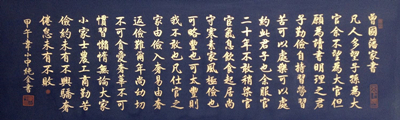 曾國藩家書
凡人多望子孫為大
官余不願為大官但
願為讀書明理之君
子勤儉自持習勞習
苦可以處樂可以處
約此君子也余服官
二十年不敢稍染官
宦氣息飲食起居尚
守寒素家風極儉也
可略豐也可太豐則
我不敢也凡仕宦之
家由儉入奢易由奢
返儉難爾年尚幼切
不可貪愛奢華不可
慣習懶惰無論大家
小家士農工商勤苦
儉約未有不興驕奢
倦怠未有不敗
甲午年 書